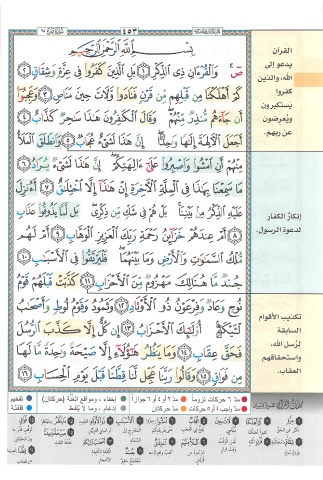 ٤٥٣
بِسْمِ ٱللَّهِ ٱلرَّحْمَٰنِ ٱلرَّحِيمِ
صٓ وَٱلْقُرْءَانِ ذِى ٱلذِّكْرِ ١ بَلِ ٱلَّذِينَ كَفَرُوا۟ فِى عِزَّةٍ وَشِقَاقٍ ٢
كَمْ أَهْلَكْنَا مِن قَبْلِهِم مِّن قَرْنٍ فَنَادَوا۟ وَّلَاتَ حِينَ مَنَاصٍ ٣ وَعَجِبُوٓا۟
أَن جَآءَهُم مُّنذِرٌ مِّنْهُمْ وَقَالَ ٱلْكَٰفِرُونَ هَٰذَا سَٰحِرٌ كَذَّابٌ ٤
أَجَعَلَ ٱلْءَالِهَةَ إِلَٰهًا وَٰحِدًا إِنَّ هَٰذَا لَشَىْءٌ عُجَابٌ ٥ وَٱنطَلَقَ ٱلْمَلَأُ
مِنْهُمْ أَنِ ٱمْشُوا۟ وَٱصْبِرُوا۟ عَلَىٰٓ ءَالِهَتِكُمْ إِنَّ هَٰذَا لَشَىْءٌ يُرَادُ ٦
مَا سَمِعْنَا بِهَٰذَا فِى ٱلْمِلَّةِ ٱلْءَاخِرَةِ إِنْ هَٰذَآ إِلَّا ٱخْتِلَٰقٌ ٧ أَءُنزِلَ
عَلَيْهِ ٱلذِّكْرُ مِنۢ بَيْنِنَا بَلْ هُمْ فِى شَكٍّ مِّن ذِكْرِى بَل لَّمَّا يَذُوقُوا۟ عَذَابِ
٨ أَمْ عِندَهُمْ خَزَآئِنُ رَحْمَةِ رَبِّكَ ٱلْعَزِيزِ ٱلْوَهَّابِ ٩ أَمْ لَهُم
مُّلْكُ ٱلسَّمَٰوَٰتِ وَٱلْأَرْضِ وَمَا بَيْنَهُمَا فَلْيَرْتَقُوا۟ فِى ٱلْأَسْبَٰبِ ١٠
جُندٌ مَّا هُنَالِكَ مَهْزُومٌ مِّنَ ٱلْأَحْزَابِ ١١ كَذَّبَتْ قَبْلَهُمْ قَوْمُ
نُوحٍ وَعَادٌ وَفِرْعَوْنُ ذُو ٱلْأَوْتَادِ ١٢ وَثَمُودُ وَقَوْمُ لُوطٍ وَأَصْحَٰبُ
لْـَٔيْكَةِ أُو۟لَٰٓئِكَ ٱلْأَحْزَابُ ١٣ إِن كُلٌّ إِلَّا كَذَّبَ ٱلرُّسُلَ
فَحَقَّ عِقَابِ ١٤ وَمَا يَنظُرُ هَٰٓؤُلَآءِ إِلَّا صَيْحَةً وَٰحِدَةً مَّا لَهَا
مِن فَوَاقٍ ١٥ وَقَالُوا۟ رَبَّنَا عَجِّل لَّنَا قِطَّنَا قَبْلَ يَوْمِ ٱلْحِسَابِ ١٦
القرآن
يدعو إلى
الله، والذين
كفروا
يستكبرون
ويُعرضون
عن ربهم.
إنكارُ الكفار
لدعوة الرسول.
تكذيب الأقوام
السابقة
لرُسل الله،
واستحقاقهم
العقاب.
مدّ ٦ حركات لزوماً
مدّ ٢ أو ٤ أو ٦ جوازاً
إخفاء، ومواقع الغُنَّة (حركتان)
تفخيم
مدّ واجب ٤ أو ٥ حركات
مدّ حركتان
إدغام، وما لا يُلفظ
قلقلة